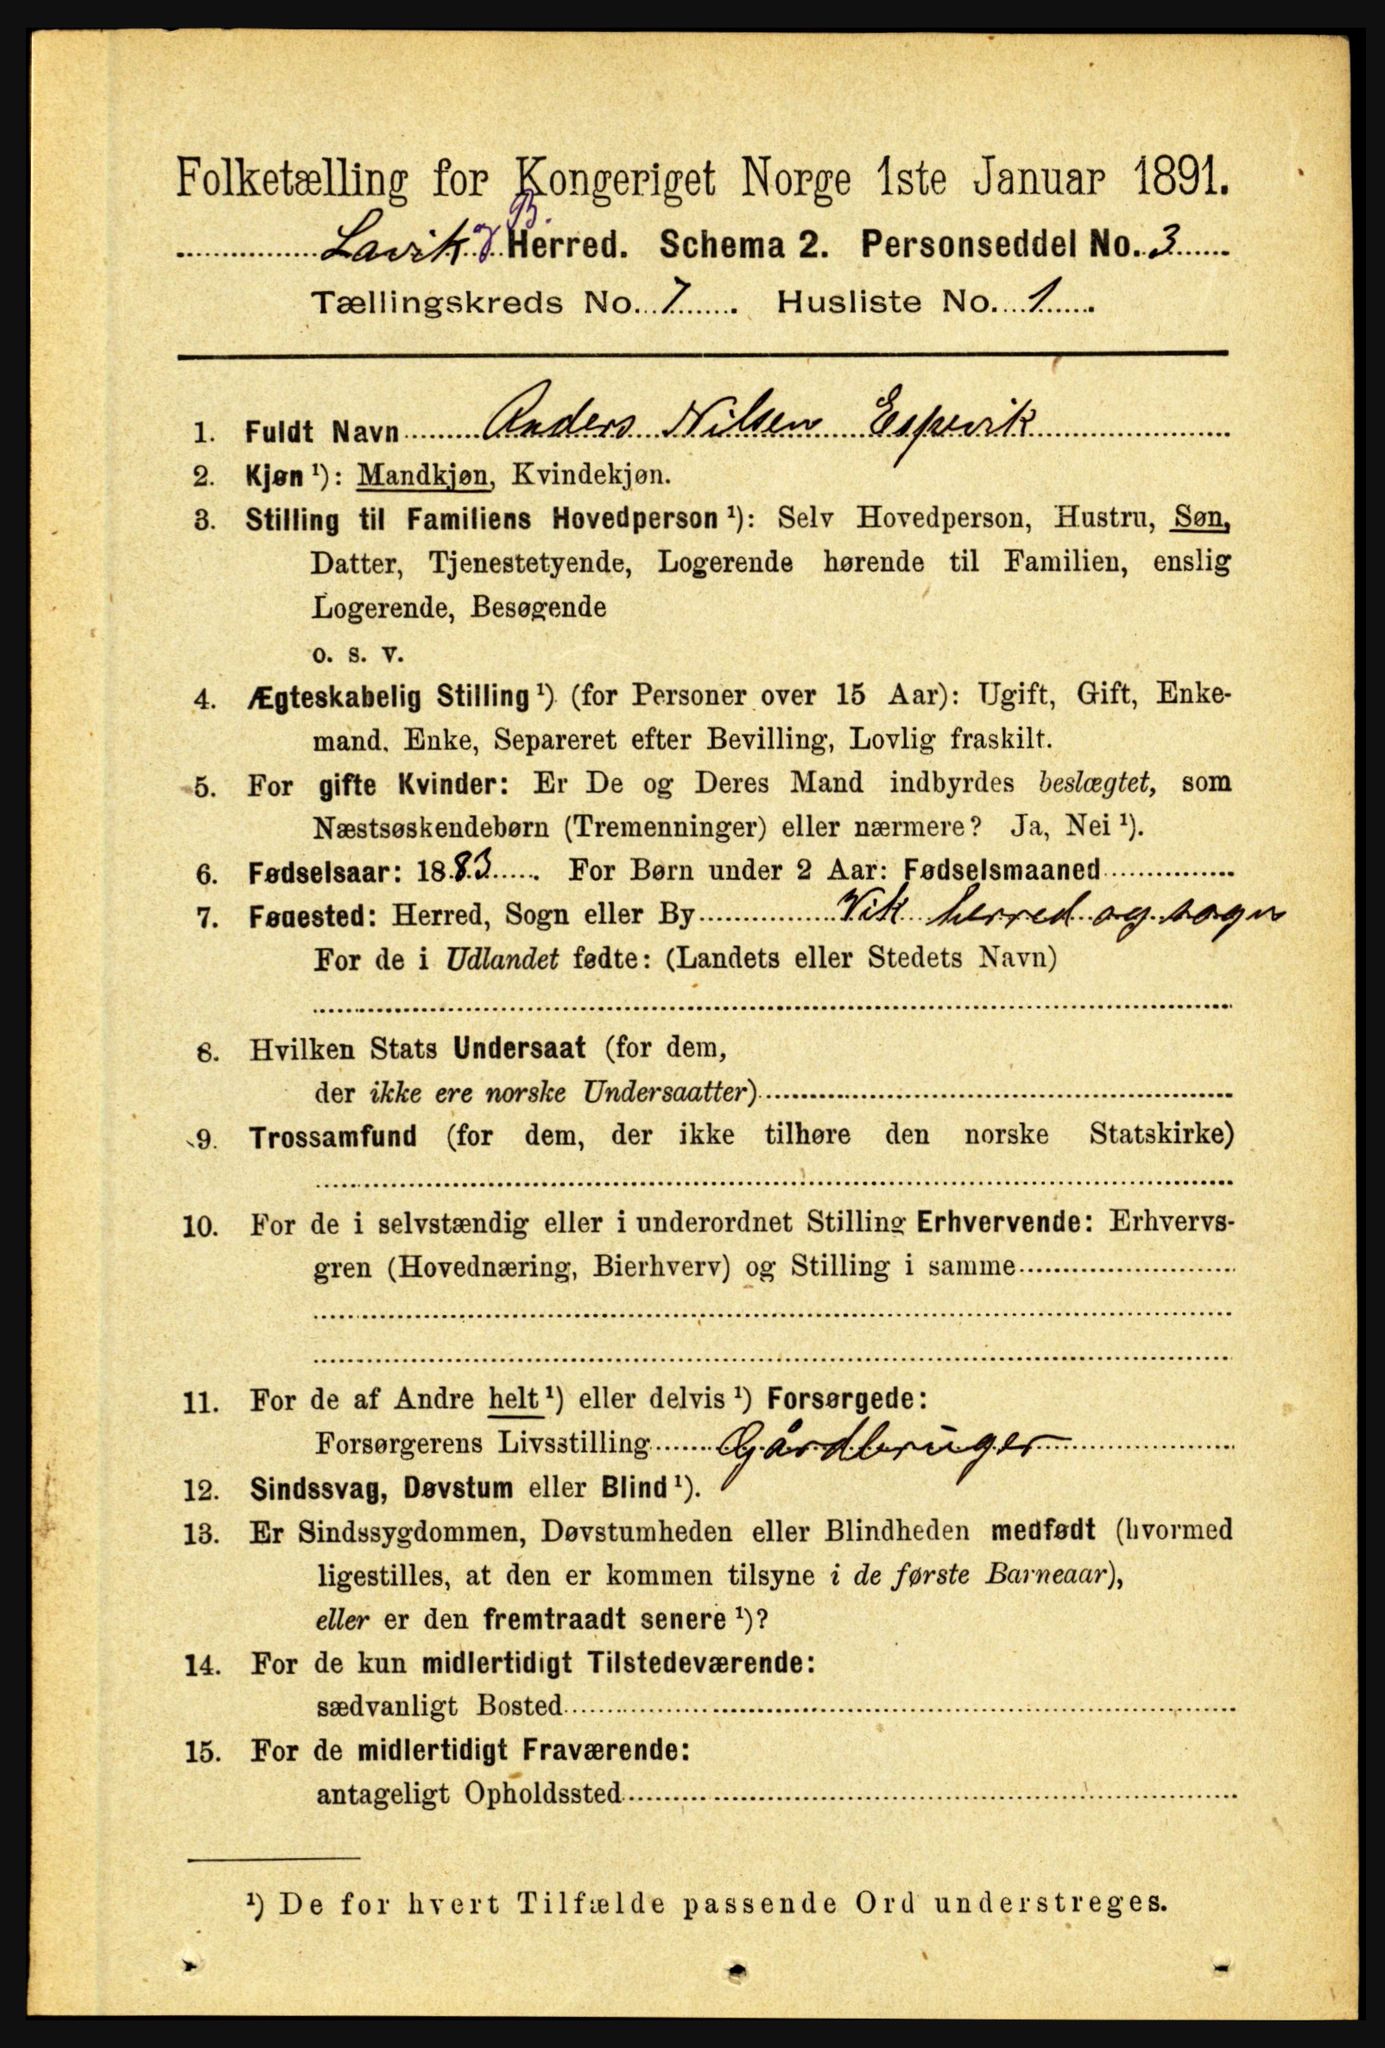 Folketælling for Kongeriget Norge 1ste Januar 1891.
Lavik & B. Herred. Schema 2. Personseddel No. 3
Tællingskreds No. 7. Husliste No. 1.
1. Fuldt Navn Anders Nilsen Espevik
2. Kjøn ¹): Mandkjøn, Kvindekjøn.
3. Stilling til Familiens Hovedperson ¹): Selv Hovedperson, Hustru, Søn,
Datter, Tjenestetyende, Logerende hørende til Familien, enslig
Logerende, Besøgende
o. s. v.
4. Ægteskabelig Stilling ¹) (for Personer over 15 Aar): Ugift, Gift, Enke-
mand, Enke, Separeret efter Bevilling, Lovlig fraskilt.
5. For gifte Kvinder: Er De og Deres Mand indbyrdes beslægtet, som
Næstsøskendebørn (Tremenninger) eller nærmere? Ja, Nei ¹).
6. Fødselsaar: 1883. For Børn under 2 Aar: Fødselsmaaned
7. Føuested: Herred, Sogn eller By Vik herred og sogn
For de i Udlandet fødte: (Landets eller Stedets Navn)
8. Hvilken Stats Undersaat (for dem,
der ikke ere norske Undersaatter)
9. Trossamfund (for dem, der ikke tilhøre den norske Statskirke)
10. For de i selvstændig eller i underordnet Stilling Erhvervende: Erhvervs-
gren (Hovednæring, Bierhverv) og Stilling i samme
11. For de af Andre helt ¹) eller delvis ¹) Forsørgede:
Forsørgerens Livsstilling Gårdbruger
12. Sindssvag, Døvstum eller Blind ¹).
13. Er Sindssygdommen, Døvstumheden eller Blindheden medfødt (hvormed
ligestilles, at den er kommen tilsyne i de første Barneaar),
eller er den fremtraadt senere ¹)?
14. For de kun midlertidigt Tilstedeværende:
sædvanligt Bosted
15. For de midlertidigt Fraværende:
antageligt Opholdssted
¹) De for hvert Tilfælde passende Ord understreges.